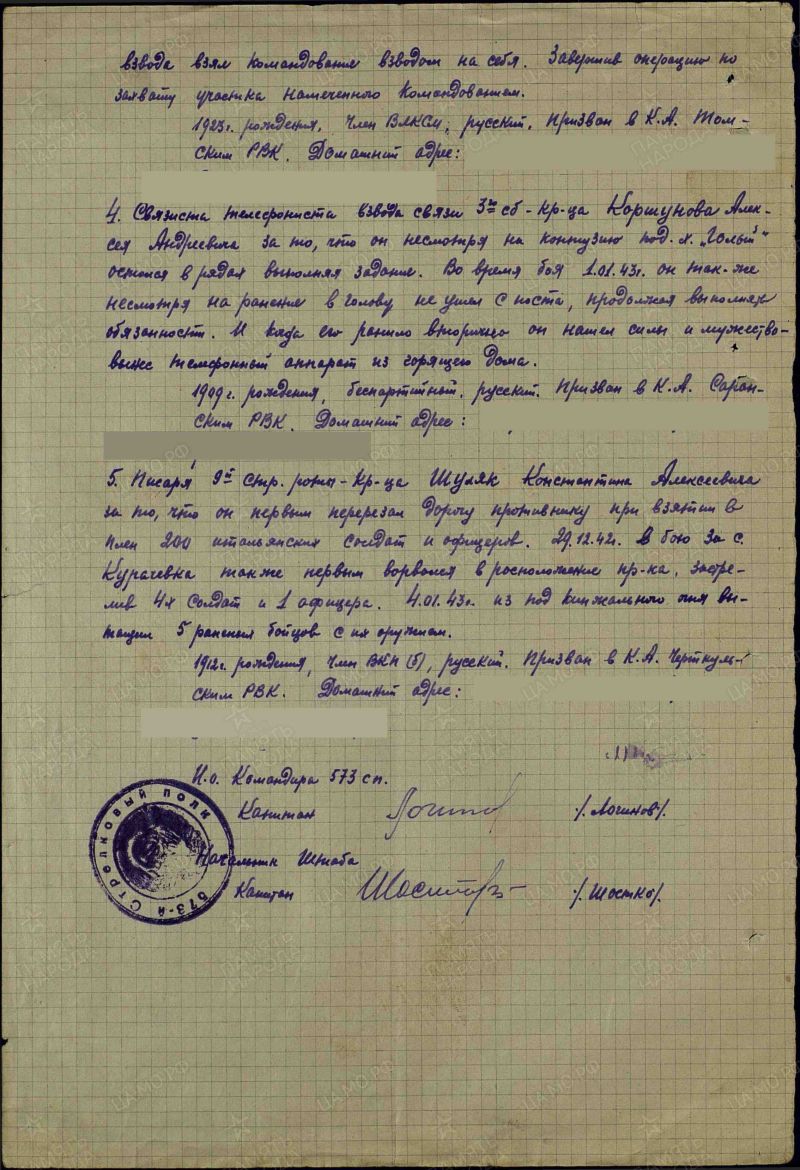 взвода взял командование взводом на себя. Завершив операцию по
захвату участка намеченного командованием.
1923г. рождения, член ВЛКСМ, русский. Призван в К.А. Том-
ским РВК. Домашний адрес:
4. Связиста телефониста взвода связи 3го сб - кр-ца Коршунова Алек-
сея Андреевича за то, что он несмотря на контузию под. х. "Голый"
остался в рядах выполняя задание. Во время боя 1.01.43г. он так-же
несмотря на ранение в голову не ушел с поста, продолжая выполнять
обязанности. И когда его ранило вторично он нашел силы и мужество-
вынес телефонный аппарат из горящего дома.
1909г. рождения, беспартийный, русский. Призван в К.А. Саран-
ским РВК. Домашний адрес:
5. Писаря 9й стр. роты - Кр-ца Шуляк Константина Алексеевича
за то, что он первым перерезал дорогу противнику при взятии в
плен 200 итальянских солдат и офицеров. 29.12.42г. в бою за с.
Курачевка также первым ворвался в расположение пр-ка, застре-
лив 4х солдат и 1 офицера. 4.01.43г. из под кинжального огня вы-
тащил 5 раненых бойцов с их оружием.
1912г. рождения, член ВКП(б), русский. Призван в К.А.
ским РВК. Домашний адрес:
И.о. Командира 573 сп.
Капитан /Логинов/.
Начальник Штаба
Капитан /Шостко/.
573-й Стрелковый полк
ПАМЯТЬ НАРОДА
ЦАМО.РФ